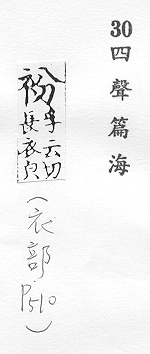 30 四聲篇海
衯孚云切
長衣皃
(衣部 P.510)